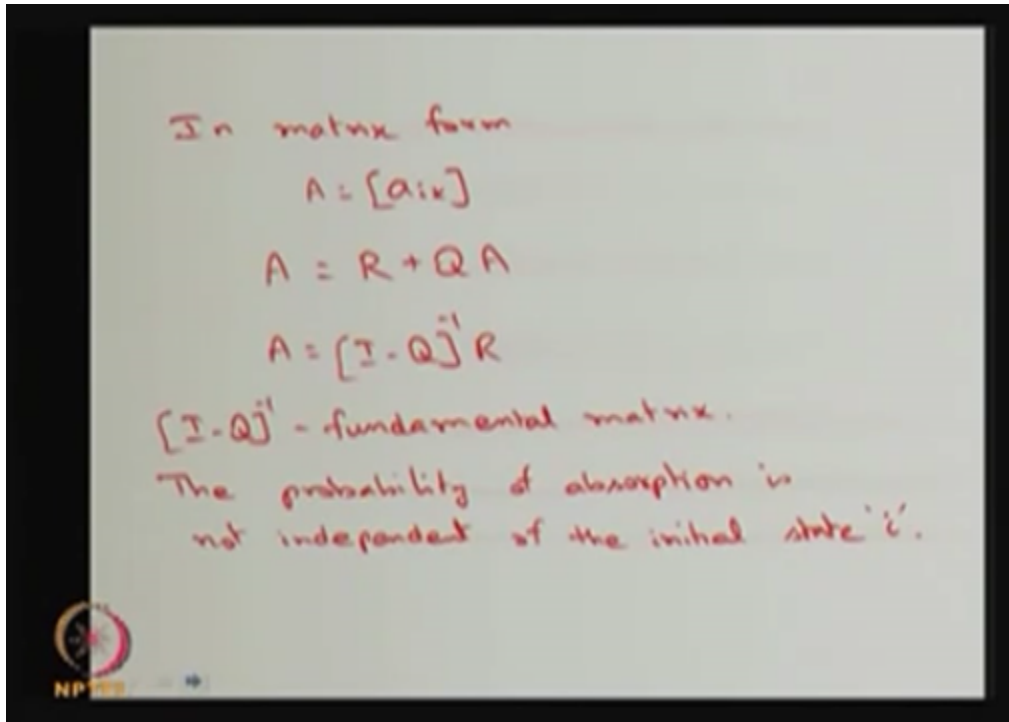 In matrix form
A = [aik]
A = R + QA
A = [I - Q]⁻¹ R
[I - Q]⁻¹ - fundamental matrix.
The probability of absorption is
not independent of the initial state 'i'.
NPTEL